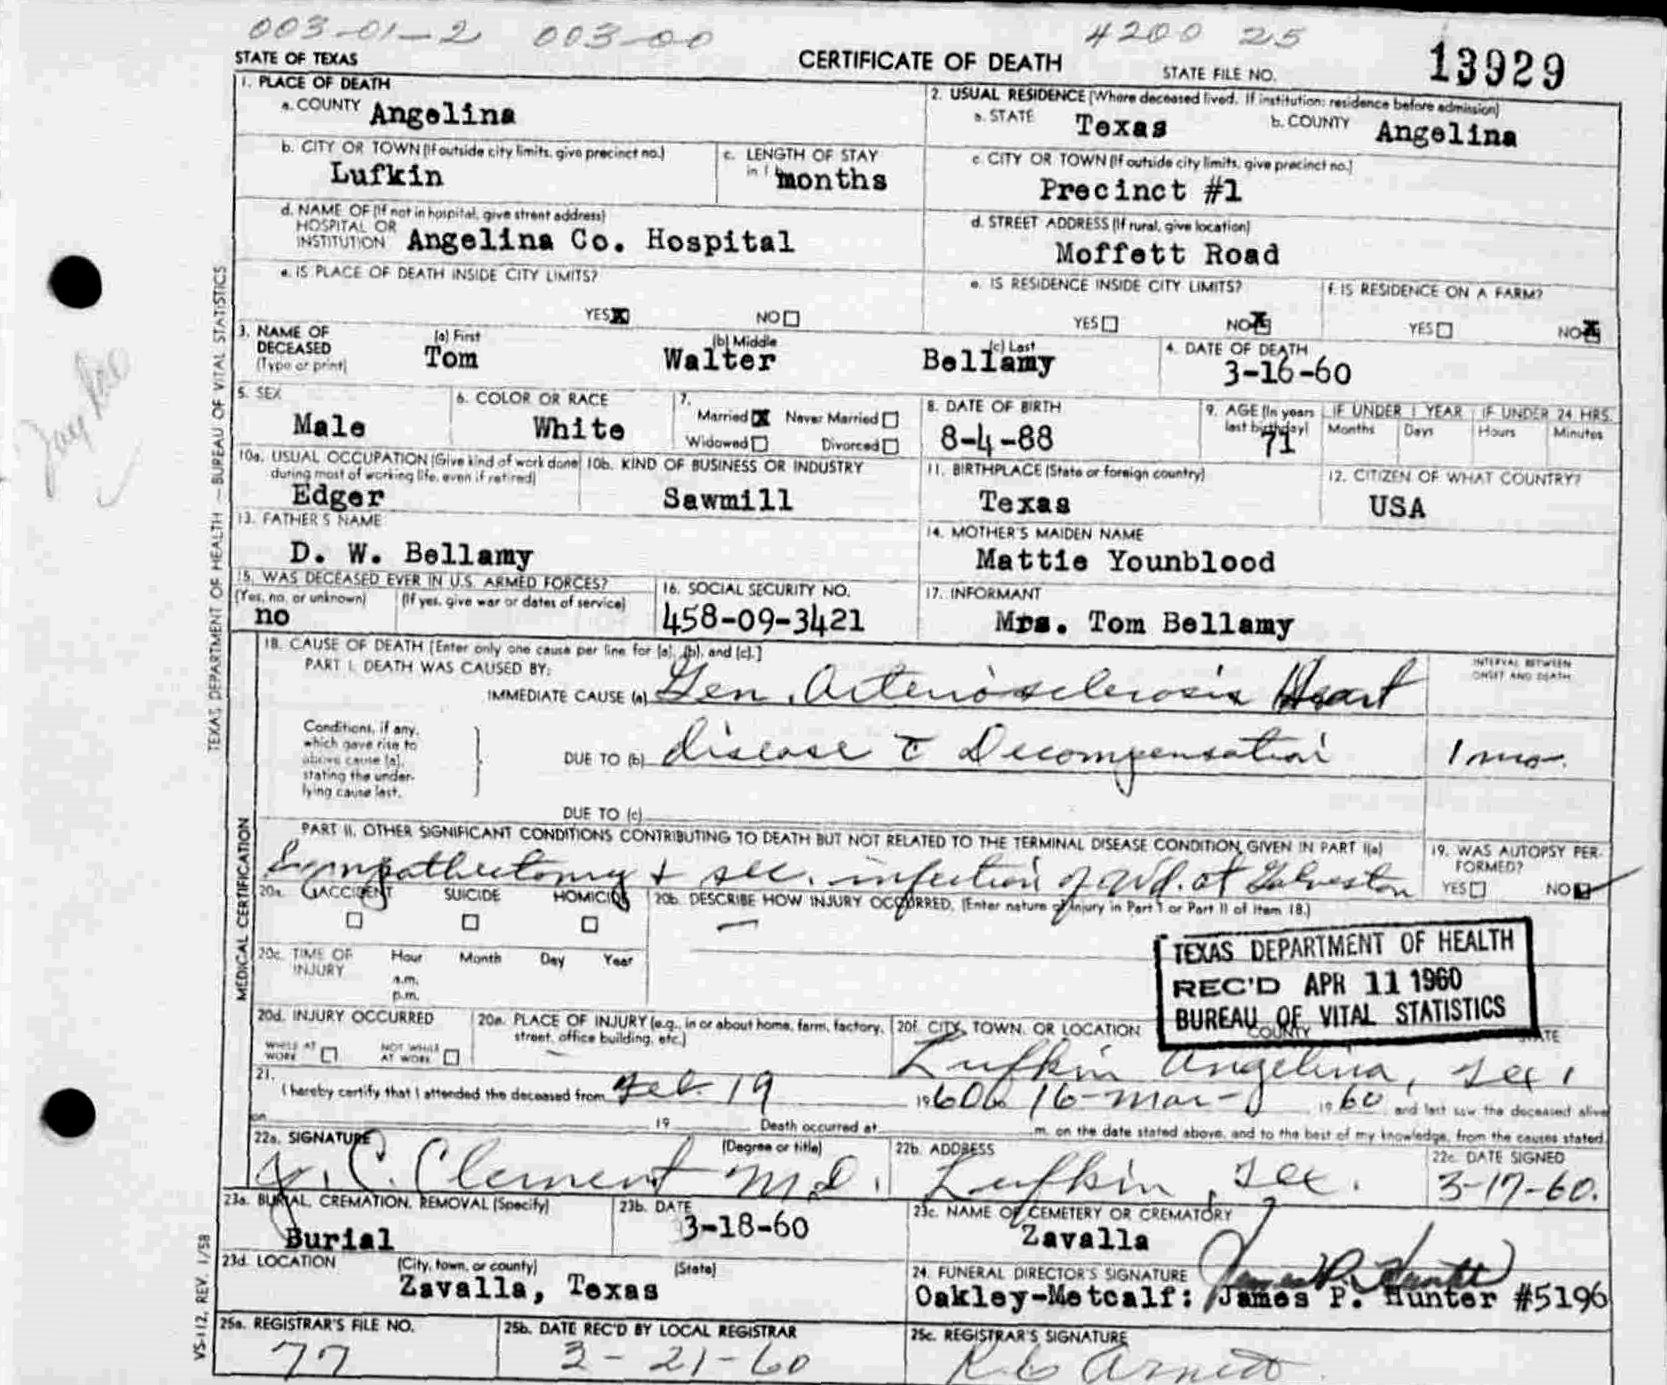 003-01-2 003-00 4200 25
STATE OF TEXAS CERTIFICATE OF DEATH STATE FILE NO. 13929
1. PLACE OF DEATH
a. COUNTY Angelina
2. USUAL RESIDENCE (Where deceased lived. If institution: residence before admission)
a. STATE Texas b. COUNTY Angelina
b. CITY OR TOWN (If outside city limits, give precinct no.)
Lufkin
c. LENGTH OF STAY
in 1 b
months
c. CITY OR TOWN (If outside city limits, give precinct no.)
Precinct #1
d. NAME OF (If not in hospital, give street address)
HOSPITAL OR
INSTITUTION Angelina Co. Hospital
d. STREET ADDRESS (If rural, give location)
Moffett Road
e. IS PLACE OF DEATH INSIDE CITY LIMITS?
YES NO
e. IS RESIDENCE INSIDE CITY LIMITS?
YES NO
f. IS RESIDENCE ON A FARM?
YES NO
3. NAME OF
DECEASED
(Type or print)
(a) First (b) Middle (c) Last
Tom Walter Bellamy
4. DATE OF DEATH
3-16-60
5. SEX
Male
6. COLOR OR RACE
White
7.
Married Never Married
Widowed Divorced
8. DATE OF BIRTH
8-4-88
9. AGE (In years
last birthday)
71
IF UNDER 1 YEAR IF UNDER 24 HRS.
Months Days Hours Minutes
10a. USUAL OCCUPATION (Give kind of work done
during most of working life, even if retired)
Edger
10b. KIND OF BUSINESS OR INDUSTRY
Sawmill
11. BIRTHPLACE (State or foreign country)
Texas
12. CITIZEN OF WHAT COUNTRY?
USA
13. FATHER'S NAME
D. W. Bellamy
14. MOTHER'S MAIDEN NAME
Mattie Younblood
15. WAS DECEASED EVER IN U.S. ARMED FORCES?
(Yes, no, or unknown) (If yes, give war or dates of service)
no
16. SOCIAL SECURITY NO.
458-09-3421
17. INFORMANT
Mrs. Tom Bellamy
18. CAUSE OF DEATH [Enter only one cause per line for (a), (b), and (c).]
PART I. DEATH WAS CAUSED BY:
INTERVAL BETWEEN
ONSET AND DEATH
IMMEDIATE CAUSE (a) Gen. Arteriosclerosis Heart
Conditions, if any,
which gave rise to
above cause (a),
stating the under-
lying cause last.
DUE TO (b) disease c̄ Decompensation 1 mo.
DUE TO (c)
PART II. OTHER SIGNIFICANT CONDITIONS CONTRIBUTING TO DEATH BUT NOT RELATED TO THE TERMINAL DISEASE CONDITION GIVEN IN PART I(a)
Sympathectomy + sec. infection of Wd. at Galveston
19. WAS AUTOPSY PER-
FORMED?
YES NO
20a. ACCIDENT SUICIDE HOMICIDE
20b. DESCRIBE HOW INJURY OCCURRED. (Enter nature of injury in Part I or Part II of item 18.)
—
20c. TIME OF
INJURY
Hour Month Day Year
a.m.
p.m.
TEXAS DEPARTMENT OF HEALTH
REC'D APR 11 1960
BUREAU OF VITAL STATISTICS
20d. INJURY OCCURRED
WHILE AT
WORK
NOT WHILE
AT WORK
20e. PLACE OF INJURY (e.g., in or about home, farm, factory,
street, office building, etc.)
20f. CITY, TOWN, OR LOCATION COUNTY STATE
Lufkin Angelina, Tex.
21.
I hereby certify that I attended the deceased from Feb. 19 1960 to 16-Mar- 1960 and last saw the deceased alive
on 19 Death occurred at m. on the date stated above, and to the best of my knowledge, from the causes stated.
22a. SIGNATURE (Degree or title)
C. Clement M.D.
22b. ADDRESS
Lufkin, Tex.
22c. DATE SIGNED
3-17-60.
23a. BURIAL, CREMATION, REMOVAL (Specify)
Burial
23b. DATE
3-18-60
23c. NAME OF CEMETERY OR CREMATORY
Zavalla
23d. LOCATION (City, town, or county) (State)
Zavalla, Texas
24. FUNERAL DIRECTOR'S SIGNATURE James P. Hunter
Oakley-Metcalf: James P. Hunter #5196
25a. REGISTRAR'S FILE NO.
77
25b. DATE REC'D BY LOCAL REGISTRAR
3-21-60
25c. REGISTRAR'S SIGNATURE
Arnett
TEXAS DEPARTMENT OF HEALTH — BUREAU OF VITAL STATISTICS
MEDICAL CERTIFICATION
VS-112, REV. 1/58